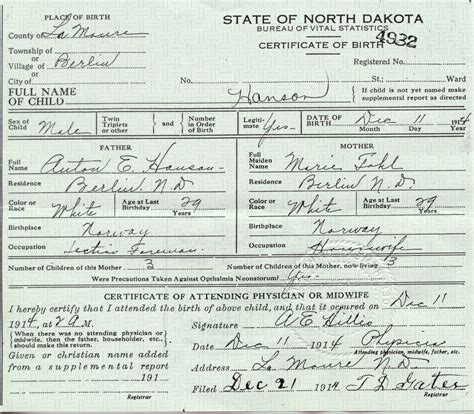 PLACE OF BIRTH
STATE OF NORTH DAKOTA
County of La Moure
BUREAU OF VITAL STATISTICS
4932
Township or
CERTIFICATE OF BIRTH
Village of Berlin
Registered No.
City of
Ward
FULL NAME OF CHILD Hanson
If child is not yet named make supplemental report as directed
Sex of Child Male
Twin Triplets or other
Number in Order of Birth
Legitimate Yes
DATE OF BIRTH Dec 11 1914
Month Day Year
FATHER
MOTHER
Full Name Anton E. Hanson
Full Maiden Name Marie
Residence Berlin N.D.
Residence Berlin N.D.
Color or Race White Age at Last Birthday 29 Years
Color or Race White Age at Last Birthday 29 Years
Birthplace Norway
Birthplace Norway
Occupation Section Foreman
Occupation Housewife
Number of Children of this Mother 3
Number of Children of this Mother, now living 3
Were Precautions Taken Against Opthalmia Neonatorum? Yes.
CERTIFICATE OF ATTENDING PHYSICIAN OR MIDWIFE
I hereby certify that I attended the birth of above child, and that it occurred on Dec 11
1914, at 2 A M.
When there was no attending physician or midwife, then the father, householder, etc., should make this return.
Signature
Date Dec 11 1914 Physician
Attending physician, midwife, father, etc.
Given or christian name added from a supplemental report
Address La Moure N.D.
191
Filed Dec 21 1914
Registrar
Registrar